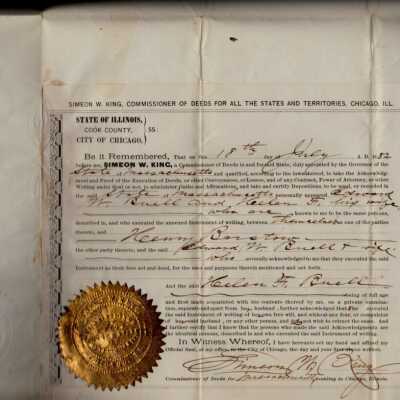 SIMEON W. KING, COMMISSIONER OF DEEDS FOR ALL THE STATES AND TERRITORIES, CHICAGO, ILL.
STATE OF ILLINOIS,
COOK COUNTY, } SS:
CITY OF CHICAGO.
Be it Remembered, That on this 18th day July A. D. 1882
before me, SIMEON W. KING, a Commissioner of Deeds in and for said State, duly appointed by the Governor of the
State of Massachusetts and qualified, according to the laws thereof, to take the Acknowledgment
and Proof of the Execution of Deeds, or other Conveyances, or Leases, and of any Contract, Power of Attorney, or other
Writing under Seal or not, to administer Oaths and Affirmations, and take and certify Depositions to be used, or recorded in
the said State of Massachusetts personally appeared Edward
W. Buell and Helen F. his wife
who are known to me to be the same persons,
described in, and who executed the annexed Instrument of writing, between themselves one of the
parties thereto, and
Henry
the other party thereto; and the said Edward W. Buell & wife
who severally acknowledged to me that they executed the said
Instrument as their free act and deed, for the uses and purposes therein mentioned and set forth.
And the said Helen F. Buell
being of full age
and first made acquainted with the contents thereof by me, on a private examination
separate and apart from her husband, further acknowledged that she executed
the said Instrument of writing of her own free will, and without any fear, or compulsion
of her said husband, or any other person, and does not wish to retract the same. And
I further certify that I know that the persons who made the said Acknowledgments are
the identical persons, described in and who executed the said Instrument of writing.
In Witness Whereof, I have hereunto set my hand and affixed my
Official Seal, at my office, in the City of Chicago, the day and year first above written.
Simeon W. King
Commissioner of Deeds for Massachusetts residing in Chicago, Illinois.